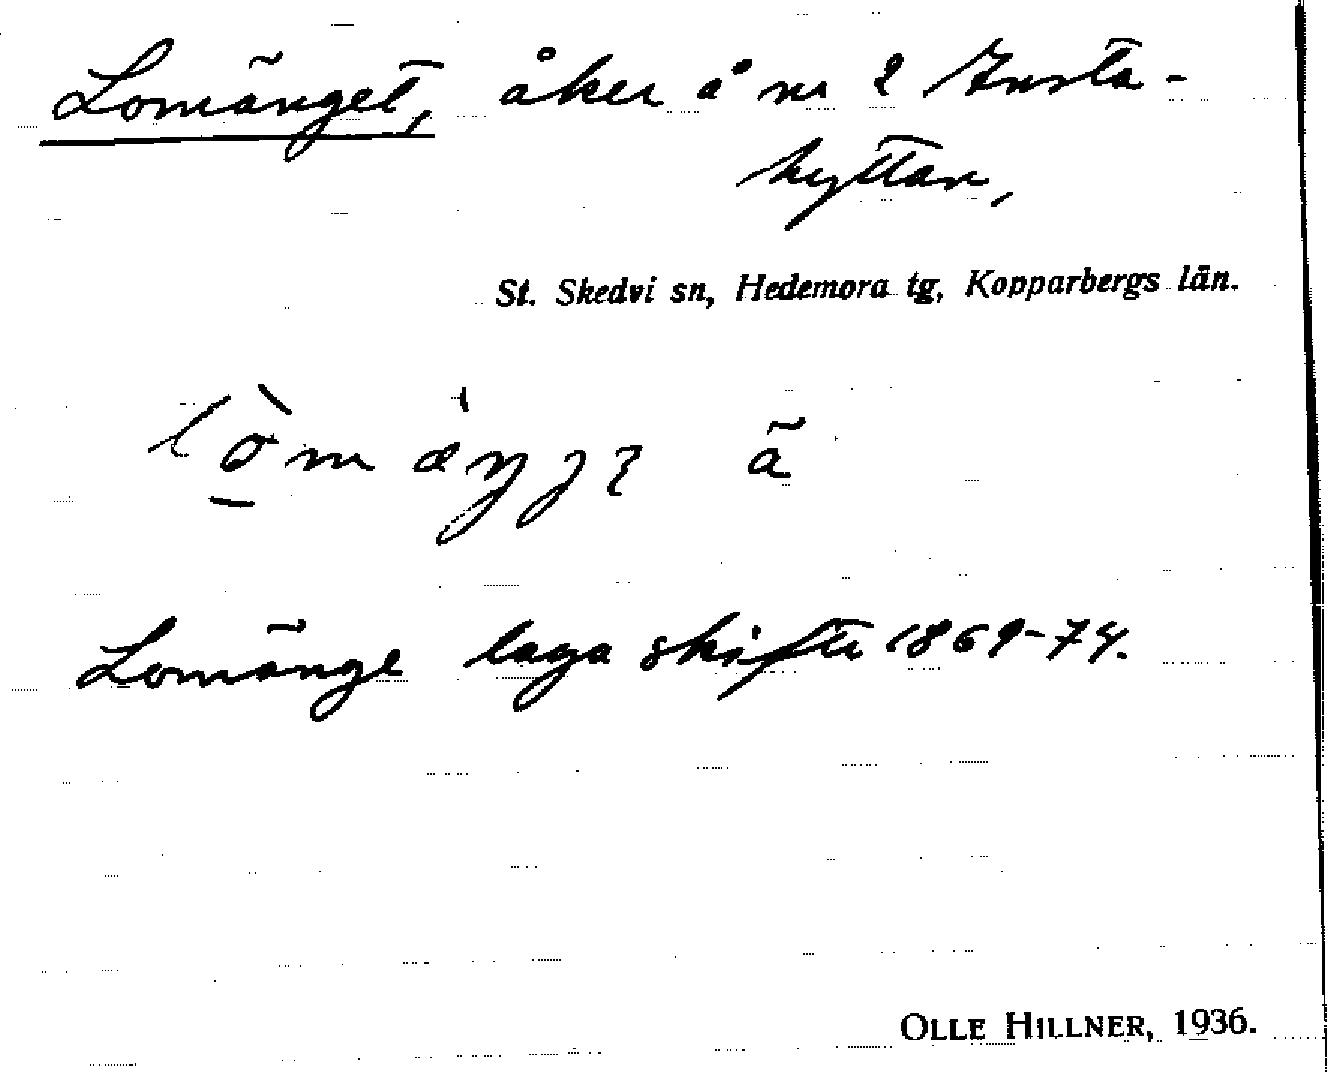 Lomänget, åker å nr 2 Knsta-
hyttan,
St. Skedvi sn, Hedemora tg, Kopparbergs län.
ã
Lomänge laga skifte 1869-74.
OLLE HILLNER, 1936.